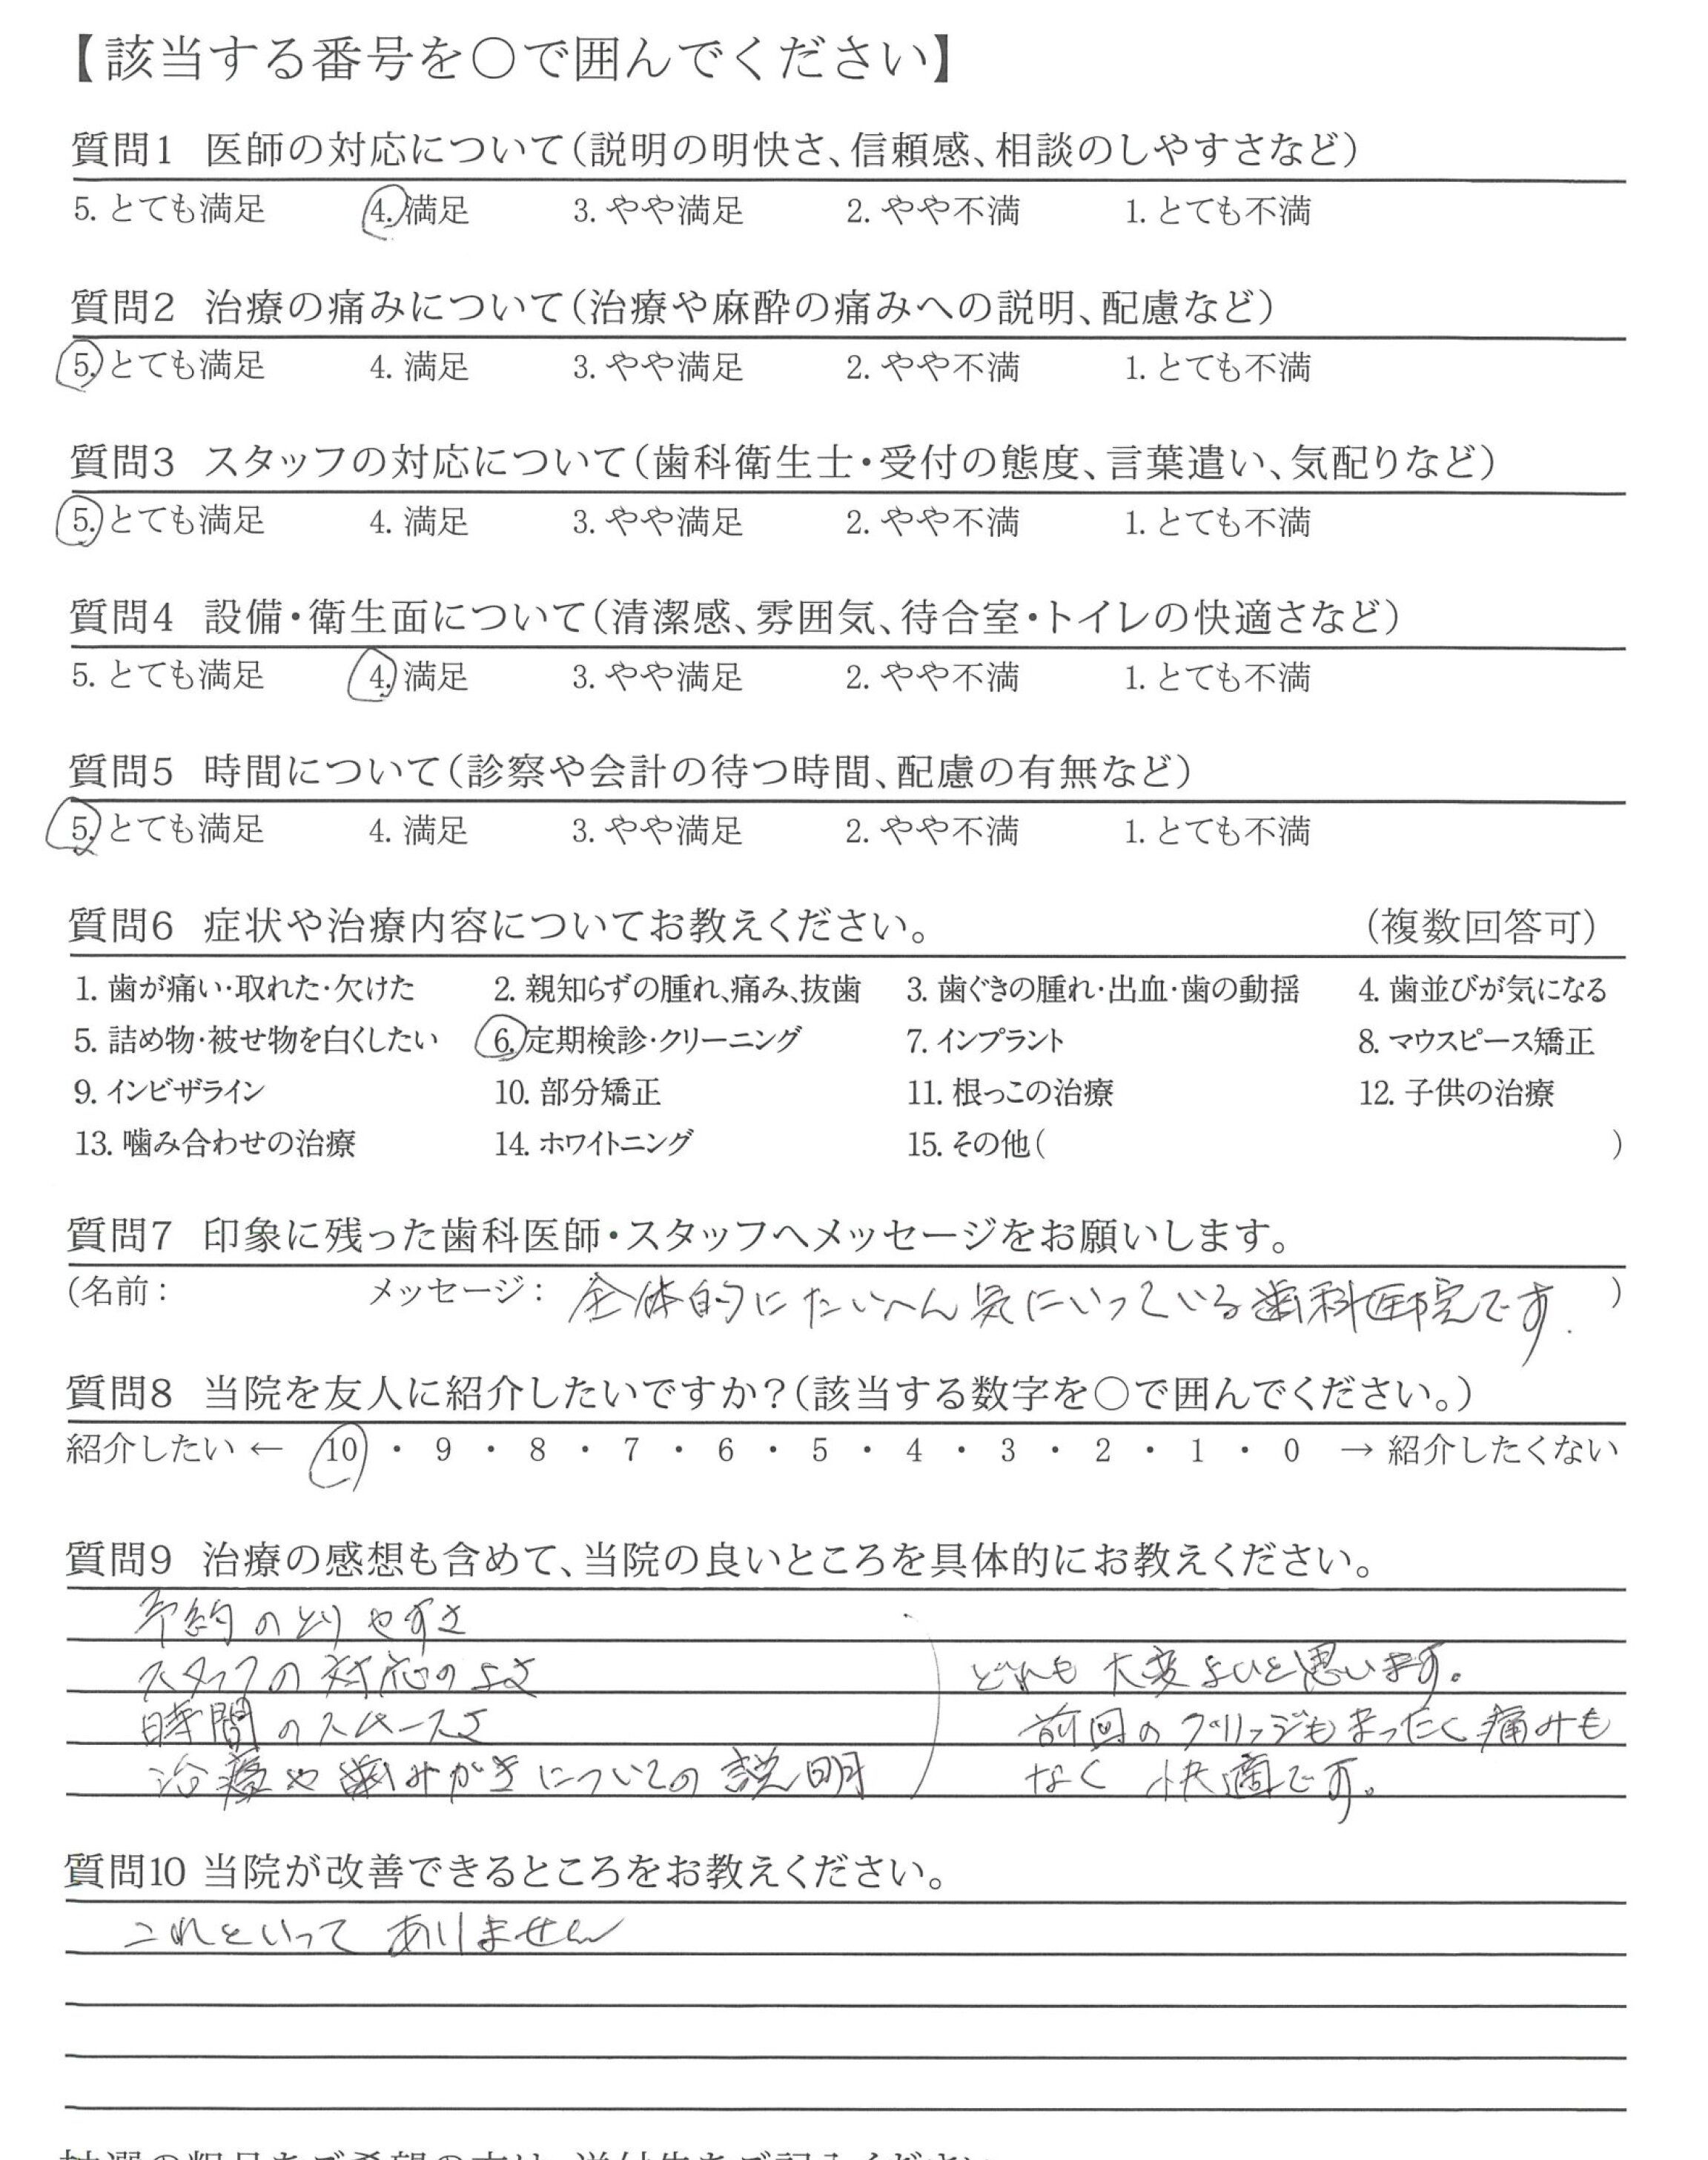 【該当する番号を○で囲んでください】
質問1 医師の対応について(説明の明快さ、信頼感、相談のしやすさなど)
5. とても満足 4. 満足 3. やや満足 2. やや不満 1. とても不満
質問2 治療の痛みについて(治療や麻酔の痛みへの説明、配慮など)
5. とても満足 4. 満足 3. やや満足 2. やや不満 1. とても不満
質問3 スタッフの対応について(歯科衛生士・受付の態度、言葉遣い、気配りなど)
5. とても満足 4. 満足 3. やや満足 2. やや不満 1. とても不満
質問4 設備・衛生面について(清潔感、雰囲気、待合室・トイレの快適さなど)
5. とても満足 4. 満足 3. やや満足 2. やや不満 1. とても不満
質問5 時間について(診察や会計の待つ時間、配慮の有無など)
5. とても満足 4. 満足 3. やや満足 2. やや不満 1. とても不満
質問6 症状や治療内容についてお教えください。 (複数回答可)
1. 歯が痛い・取れた・欠けた 2. 親知らずの腫れ、痛み、抜歯 3. 歯ぐきの腫れ・出血・歯の動揺 4. 歯並びが気になる
5. 詰め物・被せ物を白くしたい 6. 定期検診・クリーニング 7. インプラント 8. マウスピース矯正
9. インビザライン 10. 部分矯正 11. 根っこの治療 12. 子供の治療
13. 噛み合わせの治療 14. ホワイトニング 15. その他( )
質問7 印象に残った歯科医師・スタッフへメッセージをお願いします。
(名前: メッセージ: 全体的にたいへん気にいっている歯科医院です. )
質問8 当院を友人に紹介したいですか?(該当する数字を○で囲んでください。)
紹介したい ← 10 ・ 9 ・ 8 ・ 7 ・ 6 ・ 5 ・ 4 ・ 3 ・ 2 ・ 1 ・ 0 → 紹介したくない
質問9 治療の感想も含めて、当院の良いところを具体的にお教えください。
予約のとりやすさ
スタッフの対応のよさ
時間のスムースさ
治療や歯みがきについての説明
どれも大変よいと思います。
前回のブリッジもまったく痛みも
なく快適です。
質問10 当院が改善できるところをお教えください。
これといってありません